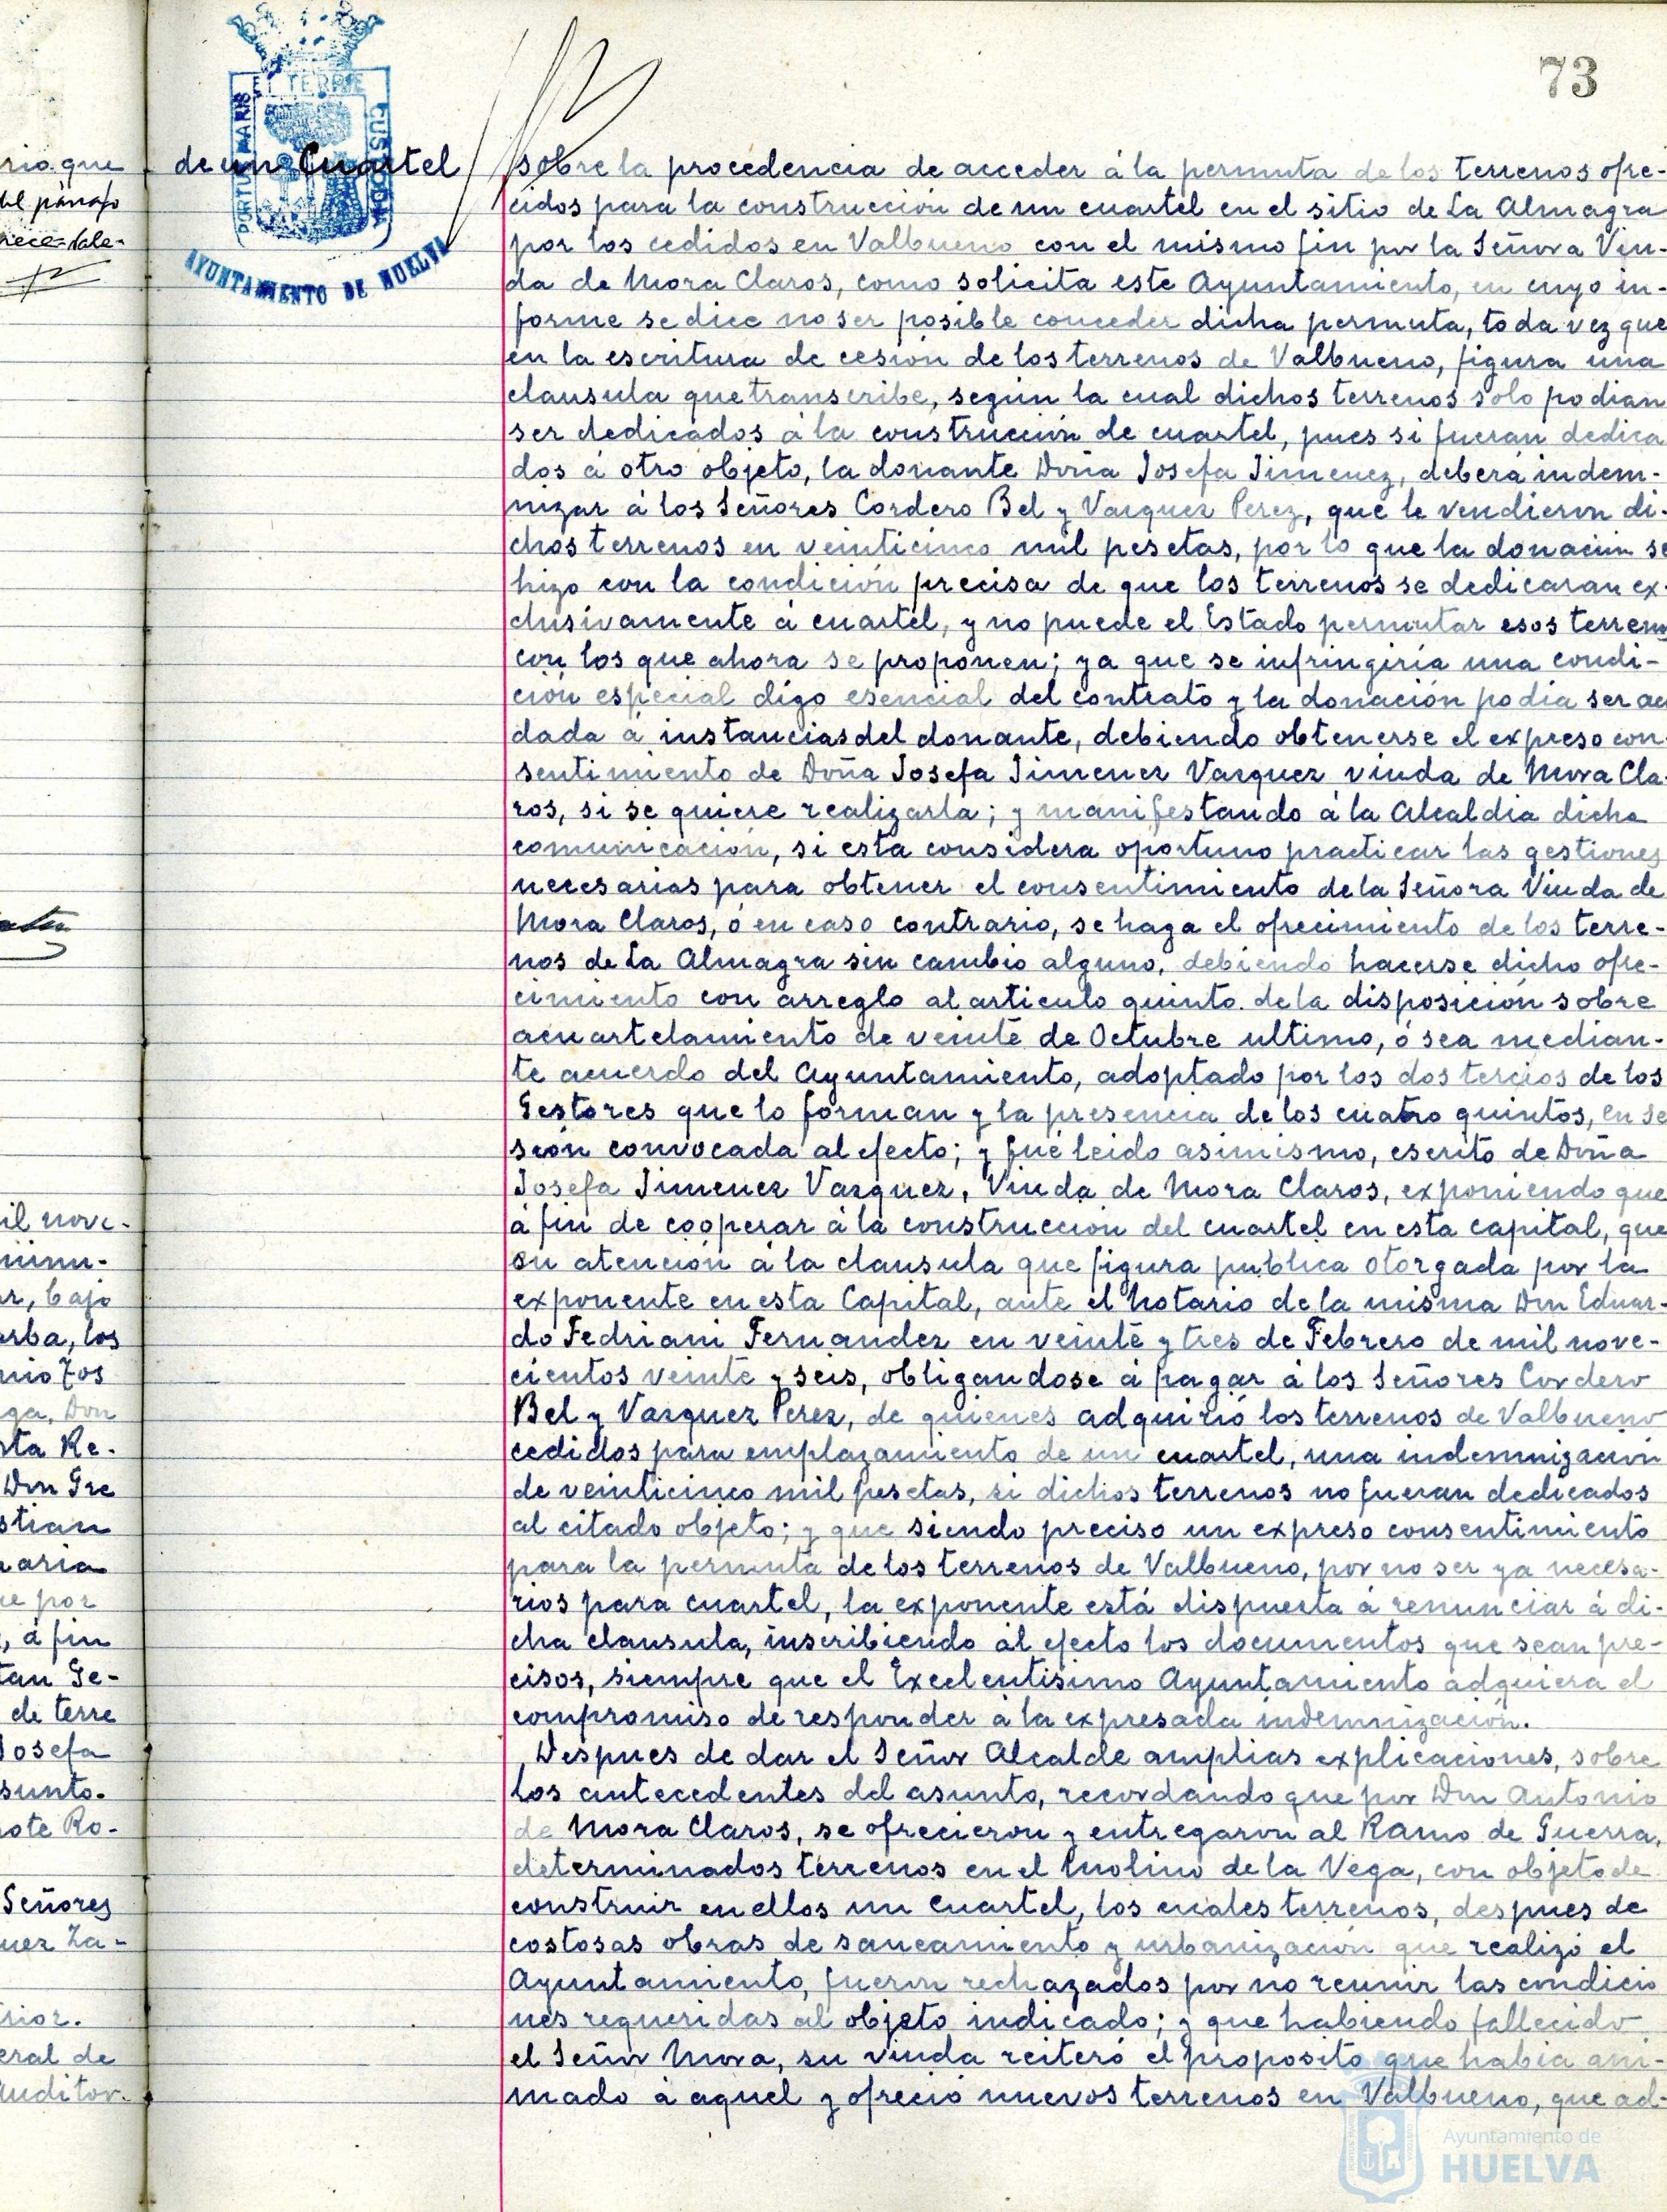 73
PORTUS MARIS
ET TERRE
CUSTODIA
AYUNTAMIENTO DE HUELVA
de un Cuartel
sobre la procedencia de acceder á la permuta de los terrenos ofre-
cidos para la construcción de un cuartel en el sitio de La Almagra
por los cedidos en Valbueno con el mismo fin por la Señora Viu-
da de Mora Claros, como solicita este Ayuntamiento, en cuyo in-
forme se dice no ser posible conceder dicha permuta, toda vez que
en la escritura de cesión de los terrenos de Valbueno, figura una
clausula que transcribe, según la cual dichos terrenos solo podian
ser dedicados á la construcción de cuartel, pues si fueran dedica
dos á otro objeto, la donante Doña Josefa Jimenez, deberá indem-
nizar á los Señores Cordero Bel y Vazquez Perez, que le vendieron di-
chos terrenos en veinticinco mil pesetas, por lo que la donación se
hizo con la condición precisa de que los terrenos se dedicaran ex-
clusivamente á cuartel, y no puede el Estado permutar esos terreno
con los que ahora se proponen; ya que se infringiría una condi-
ción especial digo esencial del contrato y la donación podia ser
dada á instancias del donante, debiendo obtenerse el expreso con-
sentimiento de Doña Josefa Jimenez Vazquez viuda de Mora Cla-
ros, si se quiere realizarla; y manifestando á la Alcaldia dicha
comunicación, si esta considera oportuno practicar las gestiones
necesarias para obtener el consentimiento de la Señora Viuda de
Mora Claros, ó en caso contrario, se haga el ofrecimiento de los terre-
nos de La Almagra sin cambio alguno, debiendo hacerse dicho ofre-
cimiento con arreglo al articulo quinto de la disposición sobre
acuartelamiento de veinte de Octubre ultimo, ó sea median-
te acuerdo del Ayuntamiento, adoptado por los dos tercios de los
Gestores que lo forman y la presencia de los cuatro quintos, en se
sión convocada al efecto; y fué leido asimismo, escrito de Doña
Josefa Jimenez Vazquez, Viuda de Mora Claros, exponiendo que
á fin de cooperar á la construcción del cuartel en esta capital, que
en atención á la clausula que figura publica otorgada por la
exponente en esta Capital, ante el Notario de la misma Don Eduar-
do Fedriani Fernandez en veinte y tres de Febrero de mil nove-
cientos veinte y seis, obligandose á pagar á los Señores Cordero
Bel y Vazquez Perez, de quienes adquirió los terrenos de Valbueno
cedidos para emplazamiento de un cuartel, una indemnización
de veinticinco mil pesetas, si dichos terrenos no fueran dedicados
al citado objeto; y que siendo preciso un expreso consentimiento
para la permuta de los terrenos de Valbueno, por no ser ya necesa-
rios para cuartel, la exponente está dispuesta á renunciar á di-
cha clausula, inscribiendo al efecto los documentos que sean pre-
cisos, siempre que el Excelentisimo Ayuntamiento adquiera el
compromiso de responder á la expresada indemnización.
Despues de dar el Señor Alcalde amplias explicaciones, sobre
los antecedentes del asunto, recordando que por Don Antonio
de Mora Claros, se ofrecieron y entregaron al Ramo de Guerra,
determinados terrenos en el Molino de la Vega, con objeto de
construir en ellos un cuartel, los cuales terrenos, despues de
costosas obras de saneamiento y urbanización que realizó el
Ayuntamiento, fueron rechazados por no reunir las condicio
nes requeridas al objeto indicado; y que habiendo fallecido
el Señor Mora, su viuda reiteró el proposito que habia ani-
mado á aquel y ofreció nuevos terrenos en Valbueno, que ad-
Ayuntamiento de
HUELVA